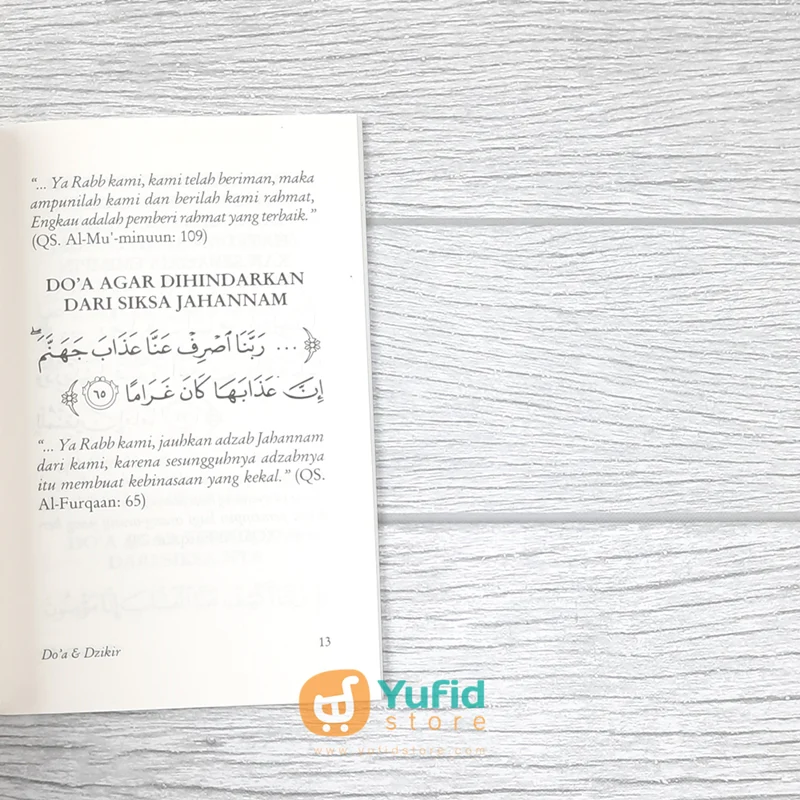 “... Ya Rabb kami, kami telah beriman, maka
ampunilah kami dan berilah kami rahmat,
Engkau adalah pemberi rahmat yang terbaik.”
(QS. Al-Mu’-minuun: 109)
DO’A AGAR DIHINDARKAN
DARI SIKSA JAHANNAM
﴿ ... رَبَّنَا ٱصۡرِفۡ عَنَّا عَذَابَ جَهَنَّمَۖ
إِنَّ عَذَابَهَا كَانَ غَرَامًا ٦٥ ﴾
“... Ya Rabb kami, jauhkan adzab Jahannam
dari kami, karena sesungguhnya adzabnya
itu membuat kebinasaan yang kekal.” (QS.
Al-Furqaan: 65)
Do’a & Dzikir
13
Yufid
store
www.yufidstore.com